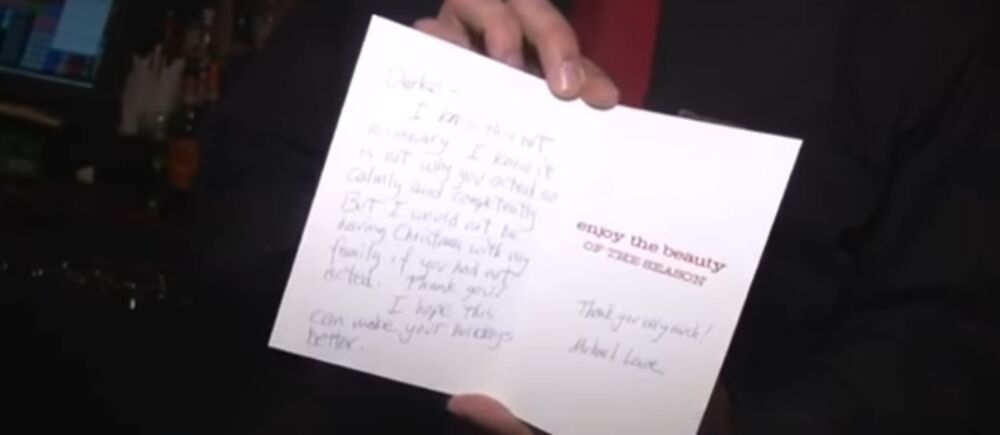 Darko -
I know this not
necessary. I know it
is not why you acted so
calmly and competently.
But I would not be
having Christmas with my
family if you had not
acted. Thank you!
I hope this
can make your holidays
better.
enjoy the beauty
OF THE SEASON
Thank you very much!
Michael Lowe